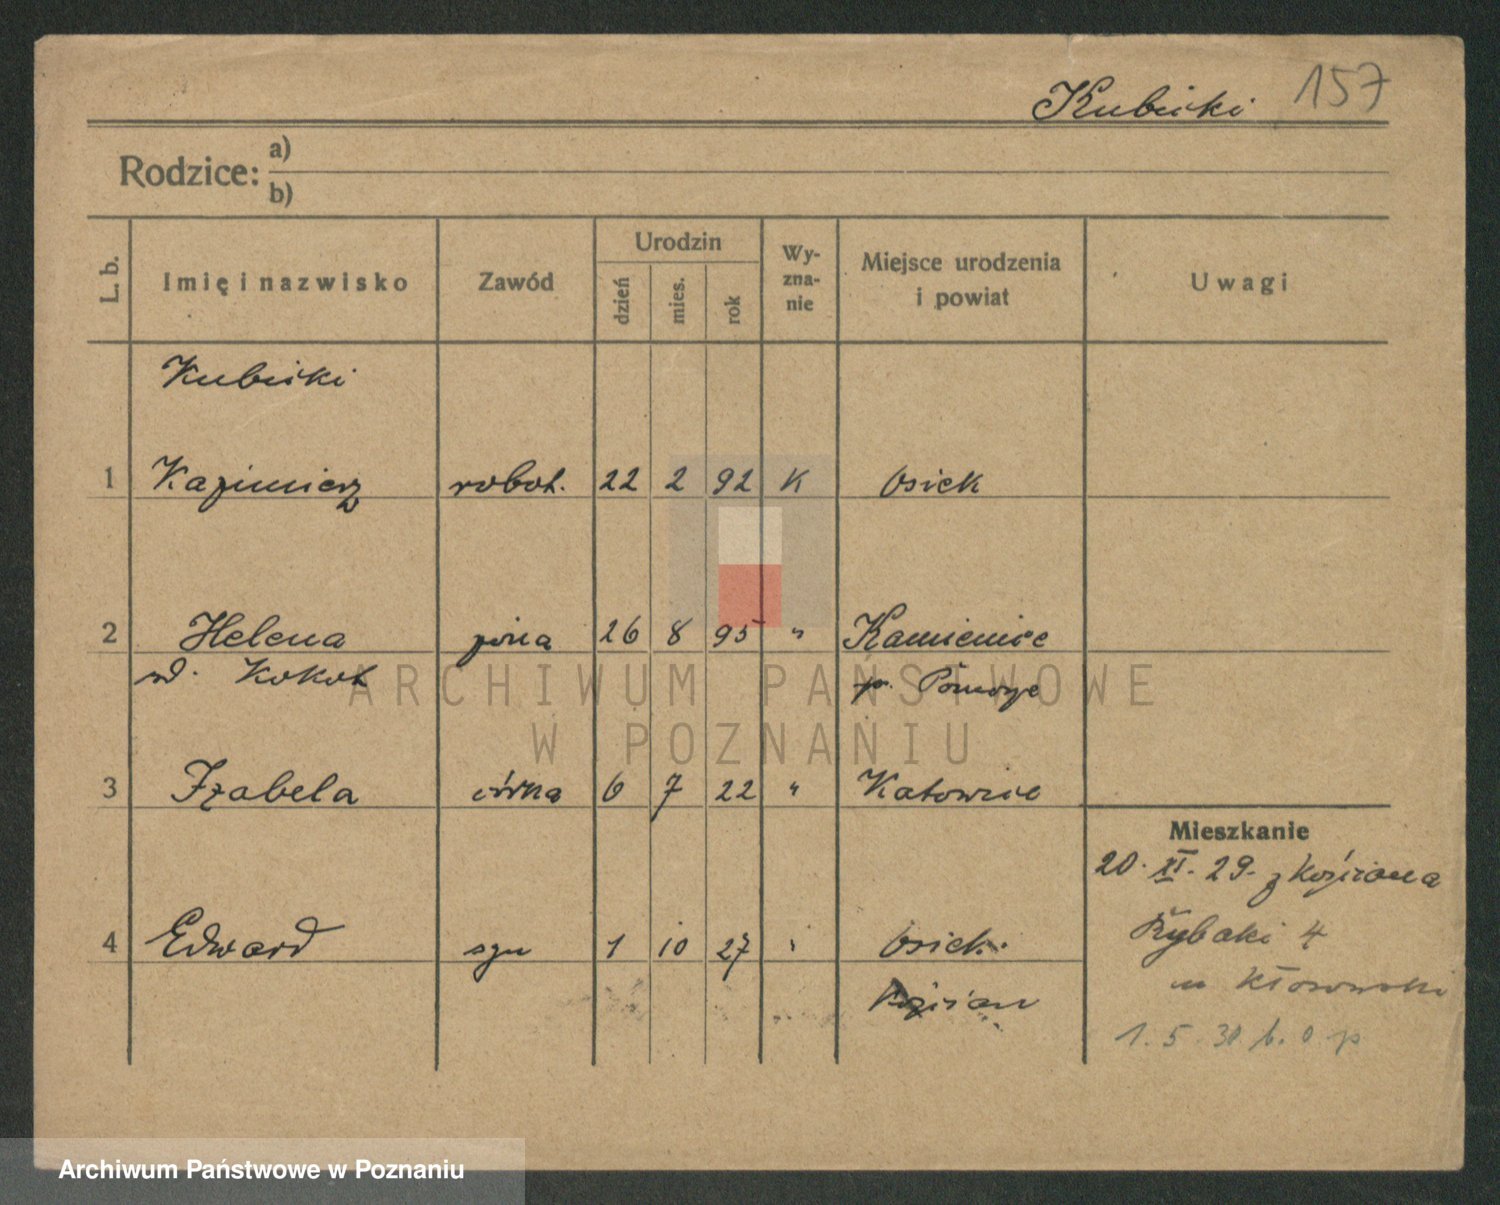 Kubicki 157
Rodzice: a)
b)
L. b. Imię i nazwisko Zawód Urodzin dzień mies. rok Wy-zna-nie Miejsce urodzenia i powiat Uwagi
Kubicki
1 Kazimierz robot. 22 2 92 K Osiek
2 Helena żona 26 8 95 " Kamienice
Kokot p. Pomorze
ARCHIWUM PAŃSTWOWE
W POZNANIU
3 Izabela córka 6 7 22 " Katowice
Mieszkanie
20. XI. 29. z Kościana
Rybaki 4
4 Edward syn 1 10 27 " Osiek.
u Kłosowski
Kościan
1. 5. 30
Archiwum Państwowe w Poznaniu